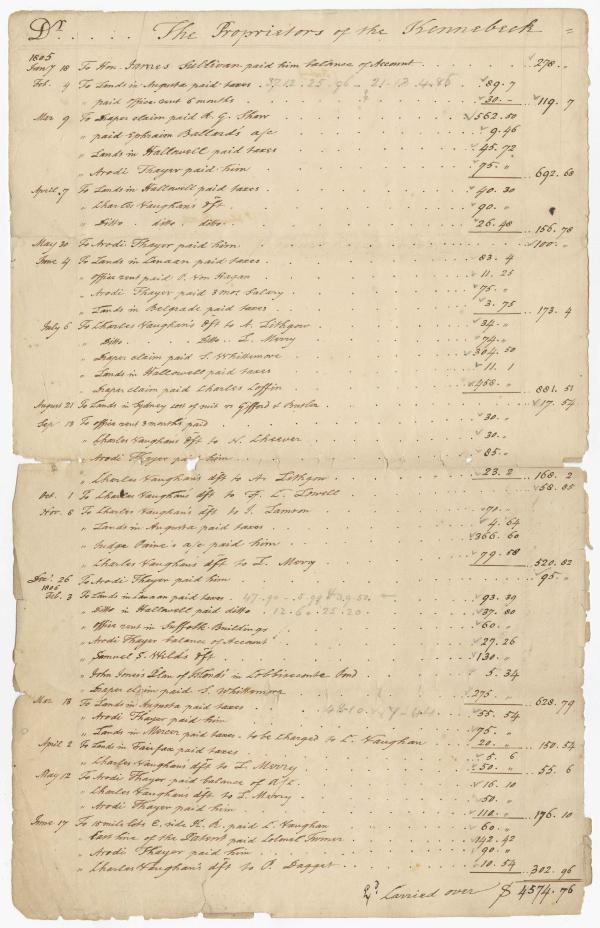 Dr. . . . . The Proprietors of the Kennebeck =
1805
Jany 18 To Hon. James Sullivan paid him balance of Account . . 278 . "
Feb. 4 To Lands in Augusta paid taxes . 37.12 . 25.96 . 21.12.4.86 89.7
" paid office rent 6 months . . 30. — . . 119. 7
Mar 9 To Draper claim paid R. G. Shaw . . 562.50
" paid Ephraim Ballard's a/c . . 9.46
" Lands in Hallowell paid taxes . . 45.72
" Arodi Thayer paid him . . 75. " . . 692.68
April 7 To Lands in Hallowell paid taxes . . 40.30
" Charles Vaughan's dft . . 90. "
" Ditto . ditto . ditto . . 26.48 . . 156.78
May 30 To Arodi Thayer paid him . . 100. "
June 4 To Lands in Canaan paid taxes . . 83.4
" office rent paid P. Von Hagan . . 11.25
" Arodi Thayer paid 3 mos Salary . . 75. "
" Lands in Belgrade paid taxes . . 3.75 . . 173.4
July 6 To Charles Vaughan's dft to A. Lithgow . . 34. "
" Ditto . . . Ditto . . L. Merry . . 74. "
" Draper claim paid S. Whittemore . . 304.50
" Lands in Hallowell paid taxes . . 11.1
" Draper claim paid Charles Coffin . . 458. " . . 881.51
August 21 To Lands in Sydney cost of suit vs Gifford & Butler . . 17.54
Sep. 13 To office rent 3 months paid . . 30. "
" Charles Vaughan's dft to N. Cheever . . 30. "
" Arodi Thayer paid him . . 85. "
" Charles Vaughan's dft to A. Lithgow . . 23.2 . . 168.2
Oct. 1 To Charles Vaughan's dft to J. L. Lowell . . 58.85
Nov. 8 To Charles Vaughan's dft to J. Lamson . . 70. "
" Lands in Augusta paid taxes . . 4.64
" Judge Paine's a/c paid him . . 366.60
" Charles Vaughan's dft to L. Merry . . 79.58 . . 520.82
Dec. 26 To Arodi Thayer paid him . . 95. "
1806
Feb. 3 To Lands in Canaan paid taxes . . 93.39
" Ditto in Hallowell paid ditto . 12.6 . 25.20 . . 37.80
" office rent in Suffolk Buildings . . 60. "
" Arodi Thayer balance of Account . . 27.26
" Samuel S. Wilde's dft . . 130. "
" John Jones's Plan of Islands in Cobbiseconte pond . . 5.34
" Draper claim paid S. Whittemore . . 275. " . . 628.79
Mar 18 To Lands in Augusta paid taxes . . 55.54
" Arodi Thayer paid him . . 75. "
" Lands in Mercer paid taxes . to be charged to C. Vaughan . . 20. " . . 150.54
April 2 To Lands in Fairfax paid taxes . . 5.6
" Charles Vaughan's dft to L. Merry . . 50. " . . 55.6
May 12 To Arodi Thayer paid balance of a/c . . 16.10
" Charles Vaughan's dft to L. Merry . . 50. "
" Arodi Thayer paid him . . 110. " . . 176.10
June 17 To 15 mile lots E. side K. R. paid C. Vaughan . . 60. "
" East line of the Patent paid Colonel Turner . . 142.42
" Arodi Thayer paid him . . 90. "
" Charles Vaughan's dft to P. Dagget . . 10.54 . . 302.96
Carried over $ 4574.76